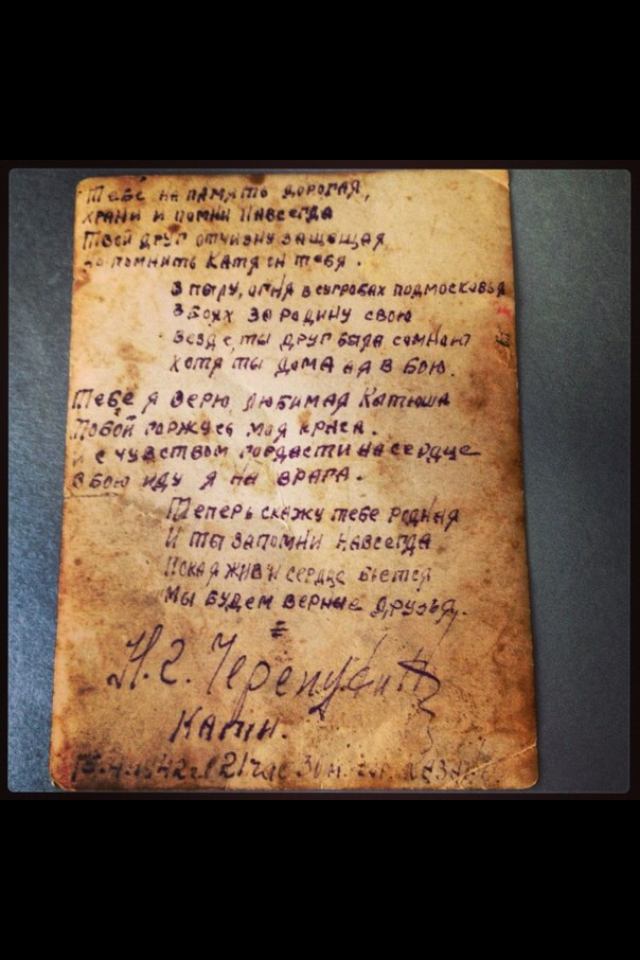 Тебе на память дорогая,
храни и помни навсегда
Твой друг отчизну защещая
помнить Катя он тебя.
В пылу, огня в сугробах подмосковья
В боях за родину свою
Везде, ты друг была самною
хотя ты дома а я в бою.
Тебе я верю любимая Катюша
Тобой горжусь моя краса.
и с чувством гордасти на сердце
в бою иду я на врага.
Теперь скажу тебе родная
И ты запомни навсегда
Пока я жив и сердце бьется
Мы будем верные друзья.
Н. Г.
Капин.
42 г. 21 час 30 м. гор. Казань.